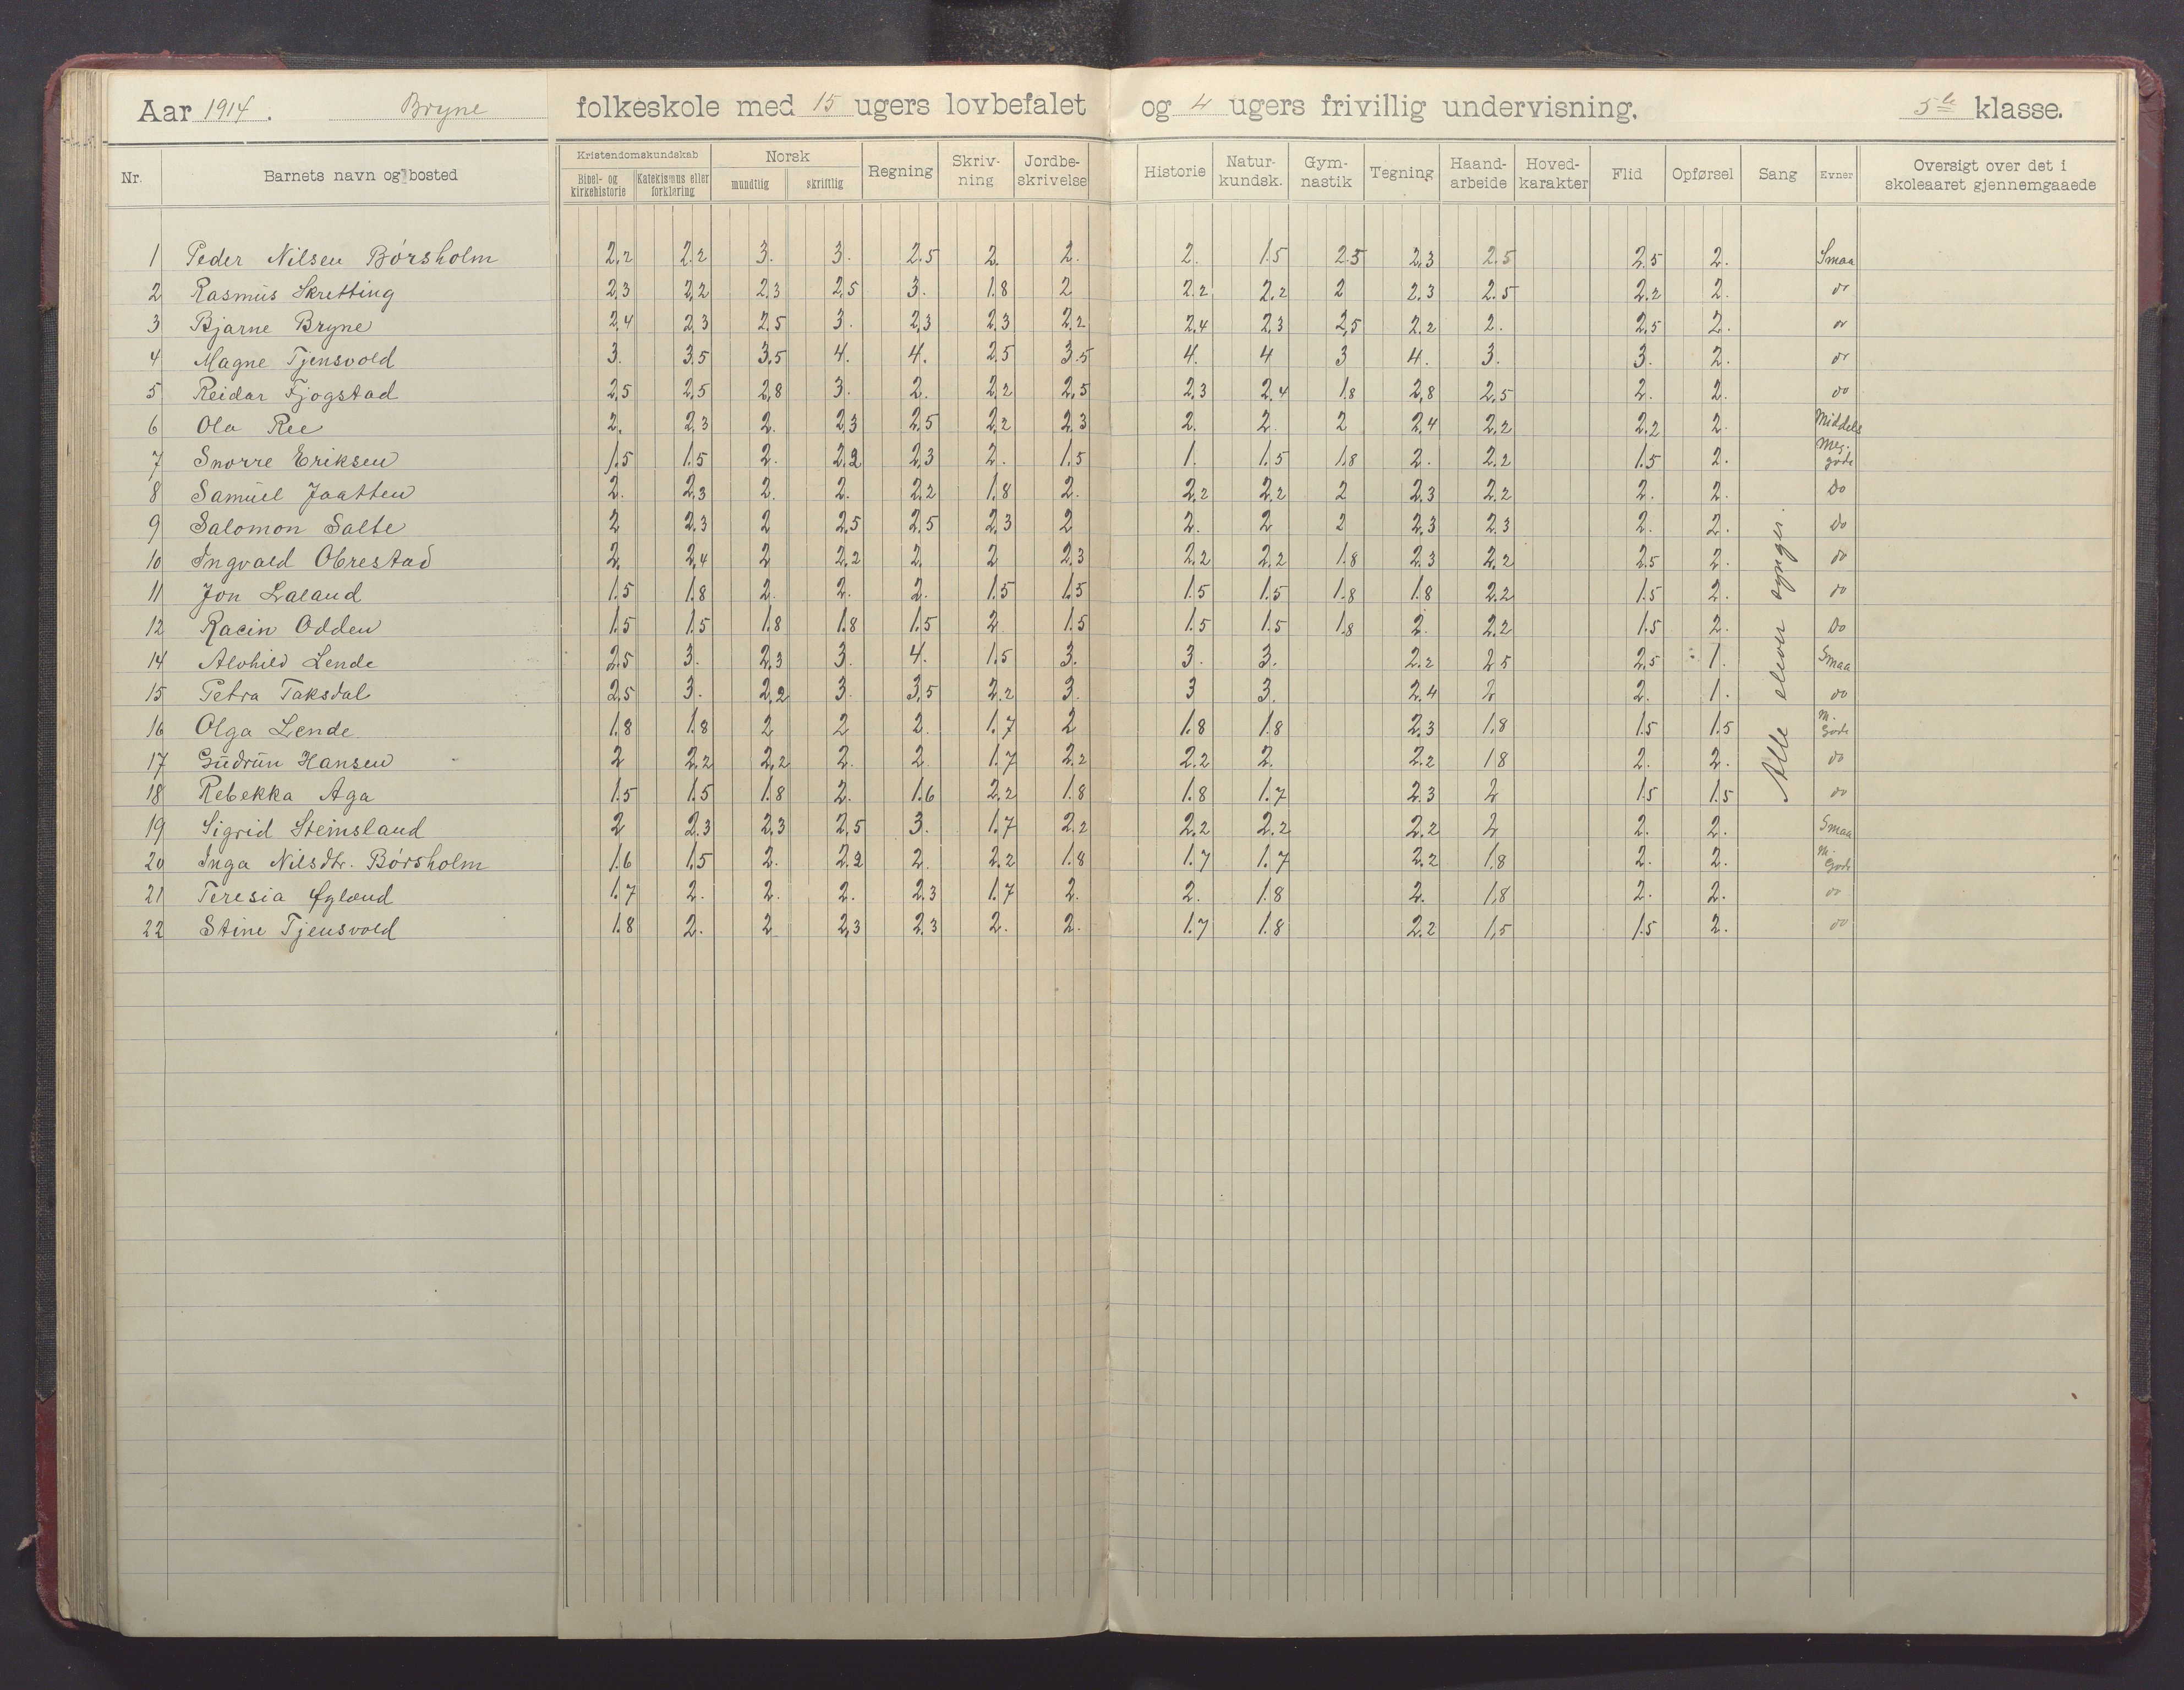 Aar 1914. Bryne folkeskole med 15 ugers lovbefalet og 4 ugers frivillig undervisning. 5te klasse.
Nr. Barnets navn og bosted Kristendomskundskab Bibel- og kirkehistorie Katekismus eller forklaring Norsk mundtlig skriftlig Regning Skriv-ning Jordbe-skrivelse Historie Natur-kundsk. Gym-nastik Tegning Haand-arbeide Hoved-karakter Flid Opførsel Sang Evner Oversigt over det i skoleaaret gjennemgaaede
1 Peder Nilsen Børsholm 2,2 2.2 3. 3. 2,5 2. 2. 2. 1.5 2.5 2,3 2.5 2.5 2. Smaa
2 Rasmus Skretting 2,3 2,2 2,3 2,5 3. 1.8 2 2.2 2.2 2 2.3 2.5 2.2 2. do
3 Bjarne Bryne 2,4 2,3 2,5 3. 2,3 2,3 2,2 2,4 2,3 2,5 2.2 2. 2.5 2. do
4 Magne Tjensvold 3. 3.5 3,5 4. 4. 2.5 3.5 4. 4 3 4. 3. 3. 2. do
5 Reidar Fjogstad 2,5 2,5 2,8 3. 2. 2,2 2,5 2,3 2.4 1.8 2,8 2,5 2. 2. do
6 Ola Ree 2. 2,3 2. 2,3 2,5 2,2 2,3 2. 2. 2 2.4 2.2 2.2 2. Middels
7 Snorre Eriksen 1.5 1.5 2. 2.2 2,3 2. 1.5 1. 1.5 1.8 2. 2.2 1.5 2. Meg. gode
8 Samuel Jaatten 2. 2,3 2. 2. 2,2 1.8 2. 2.2 2.2 2 2.3 2.2 2. 2. Do
9 Salomon Salte 2 2.3 2 2,5 2,5 2,3 2 2. 2 2 2.3 2.3 2. 2. Do
10 Ingvald Obrestad 2. 2,4 2 2,2 2. 2 2,3 2.2 2.2 1.8 2.3 2.2 2.5 2. do
11 Jon Laland 1.5 1.8 2. 2. 2. 1.5 1.5 1.5 1.5 1.8 1.8 2.2 1.5 2. do
12 Racin Odden 1.5 1.5 1.8 1.8 1.5 2 1.5 1.5 1.5 1.8 2. 2.2 1.5 2. Do
14 Alvhild Lende 2.5 3. 2,3 3. 4. 1.5 3. 3. 3. 2.2 2.5 2,5 1. Smaa
15 Petra Taksdal 2.5 3. 2,2 3. 3,5 2.2 3. 3 3. 2.4 2 2. 1. do
16 Olga Lende 1.8 1.8 2 2 2. 1.7 2 1.8 1.8 2.3 1.8 1.5 1.5 M. Gode
17 Gudrun Hansen 2 2.2 2,2 2. 2. 1.7 2.2 2.2 2. 2.2 1.8 2. 2. do
18 Rebekka Aga 1.5 1.5 1.8 2. 1.6 2,2 1.8 1.8 1.7 2.3 2 1.5 1.5 do
19 Sigrid Steinsland 2 2.3 2,3 2,5 3. 1.7 2.2 2.2 2.2 2.2 2 2. 2. Smaa
20 Inga Nilsdtr. Børsholm 1.6 1,5 2. 2.2 2. 2.2 1.8 1.7 1.7 2.2 1.8 2. 2. M. Gode
21 Teresia Øglænd 1.7 2. 2. 2. 2.3 1.7 2. 2. 1.8 2. 1,8 2. 2. do
22 Stine Tjensvold 1.8 2. 2 2,3 2.3 2. 2. 1.7 1.8 2.2 1,5 1.5 2. do
Alle elever synger.